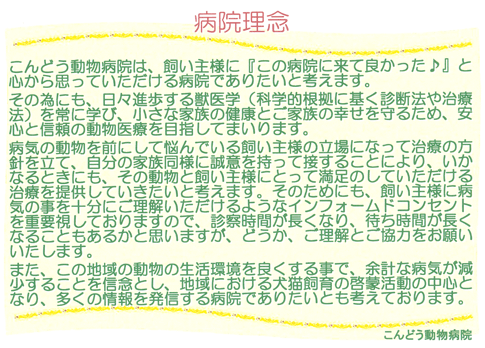 病院理念
こんどう動物病院は、飼い主様に『この病院に来て良かった♪』と
心から思っていただける病院でありたいと考えます。
その為にも、日々進歩する獣医学（科学的根拠に基く診断法や治療
法）を常に学び、小さな家族の健康とご家族の幸せを守るため、安
心と信頼の動物医療を目指してまいります。
病気の動物を前にして悩んでいる飼い主様の立場になって治療の方
針を立て、自分の家族同様に誠意を持って接することにより、いか
なるときにも、その動物と飼い主様にとって満足のしていただける
治療を提供していきたいと考えます。そのためにも、飼い主様に病
気の事を十分にご理解いただけるようなインフォームドコンセント
を重要視しておりますので、診察時間が長くなり、待ち時間が長く
なることもあるかと思いますが、どうか、ご理解とご協力をお願い
いたします。
また、この地域の動物の生活環境を良くする事で、余計な病気が減
少することを信念とし、地域における犬猫飼育の啓蒙活動の中心と
なり、多くの情報を発信する病院でありたいとも考えております。
こんどう動物病院